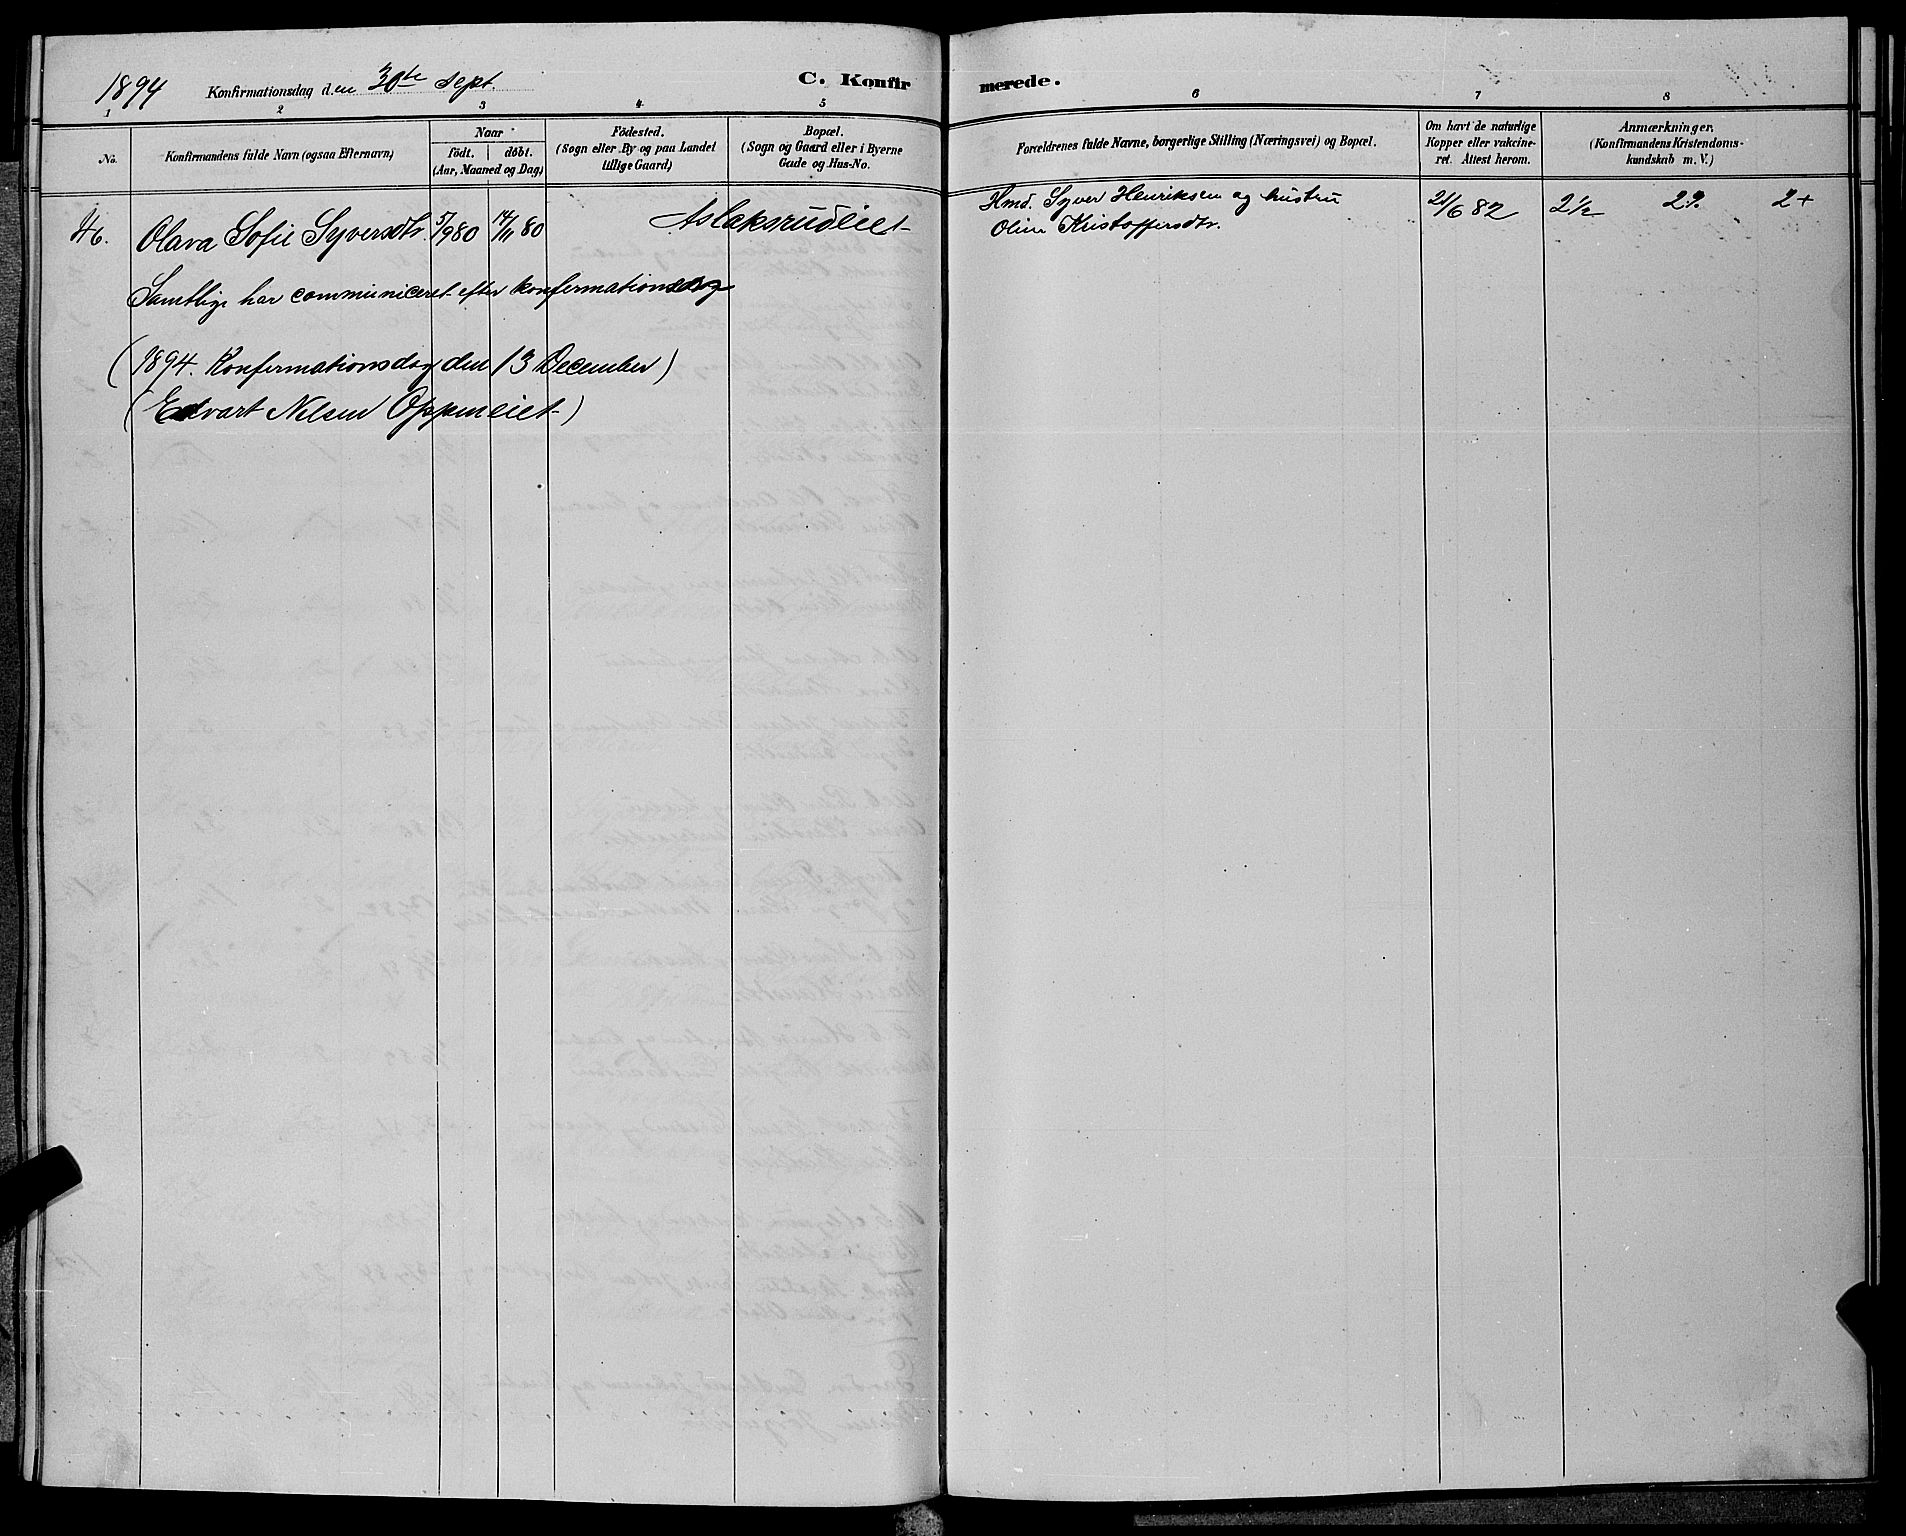 1894 Konfirmationsdag den 30te Sept. C. Konfirmerede.
1 2 3 4 5 6 7 8
No.
Konfirmandens fulde Navn (ogsaa Efternavn)
Naar
födt. döbt.
(Aar, Maaned og Dag)
Födested.
(Sogn eller By og paa Landet
tillige Gaard)
Bopæl.
(Sogn og Gaard eller i Byerne
Gade og Hus-No.
Forældrenes fulde Navne, borgerlige Stilling (Næringsvei) og Bopæl.
Om havt de naturlige
Kopper eller vakcine-
ret. Attest herom.
Anmærkninger.
(Konfirmandens Kristendoms-
kundskab m. V.)
46. Olava Sofie Syversdtr. 5/9 80 14/11 80 Aslaksrudeiet Hmd. Syver Henriksen og hustru 21/6 82 2½ 2 2+
Oline Kristoffersdtr.
Samtlige har communiceret efter konfermationsdag
(1894. Konfermationsdag den 13 December)
(Edvart Nilsen Oppeneiet)